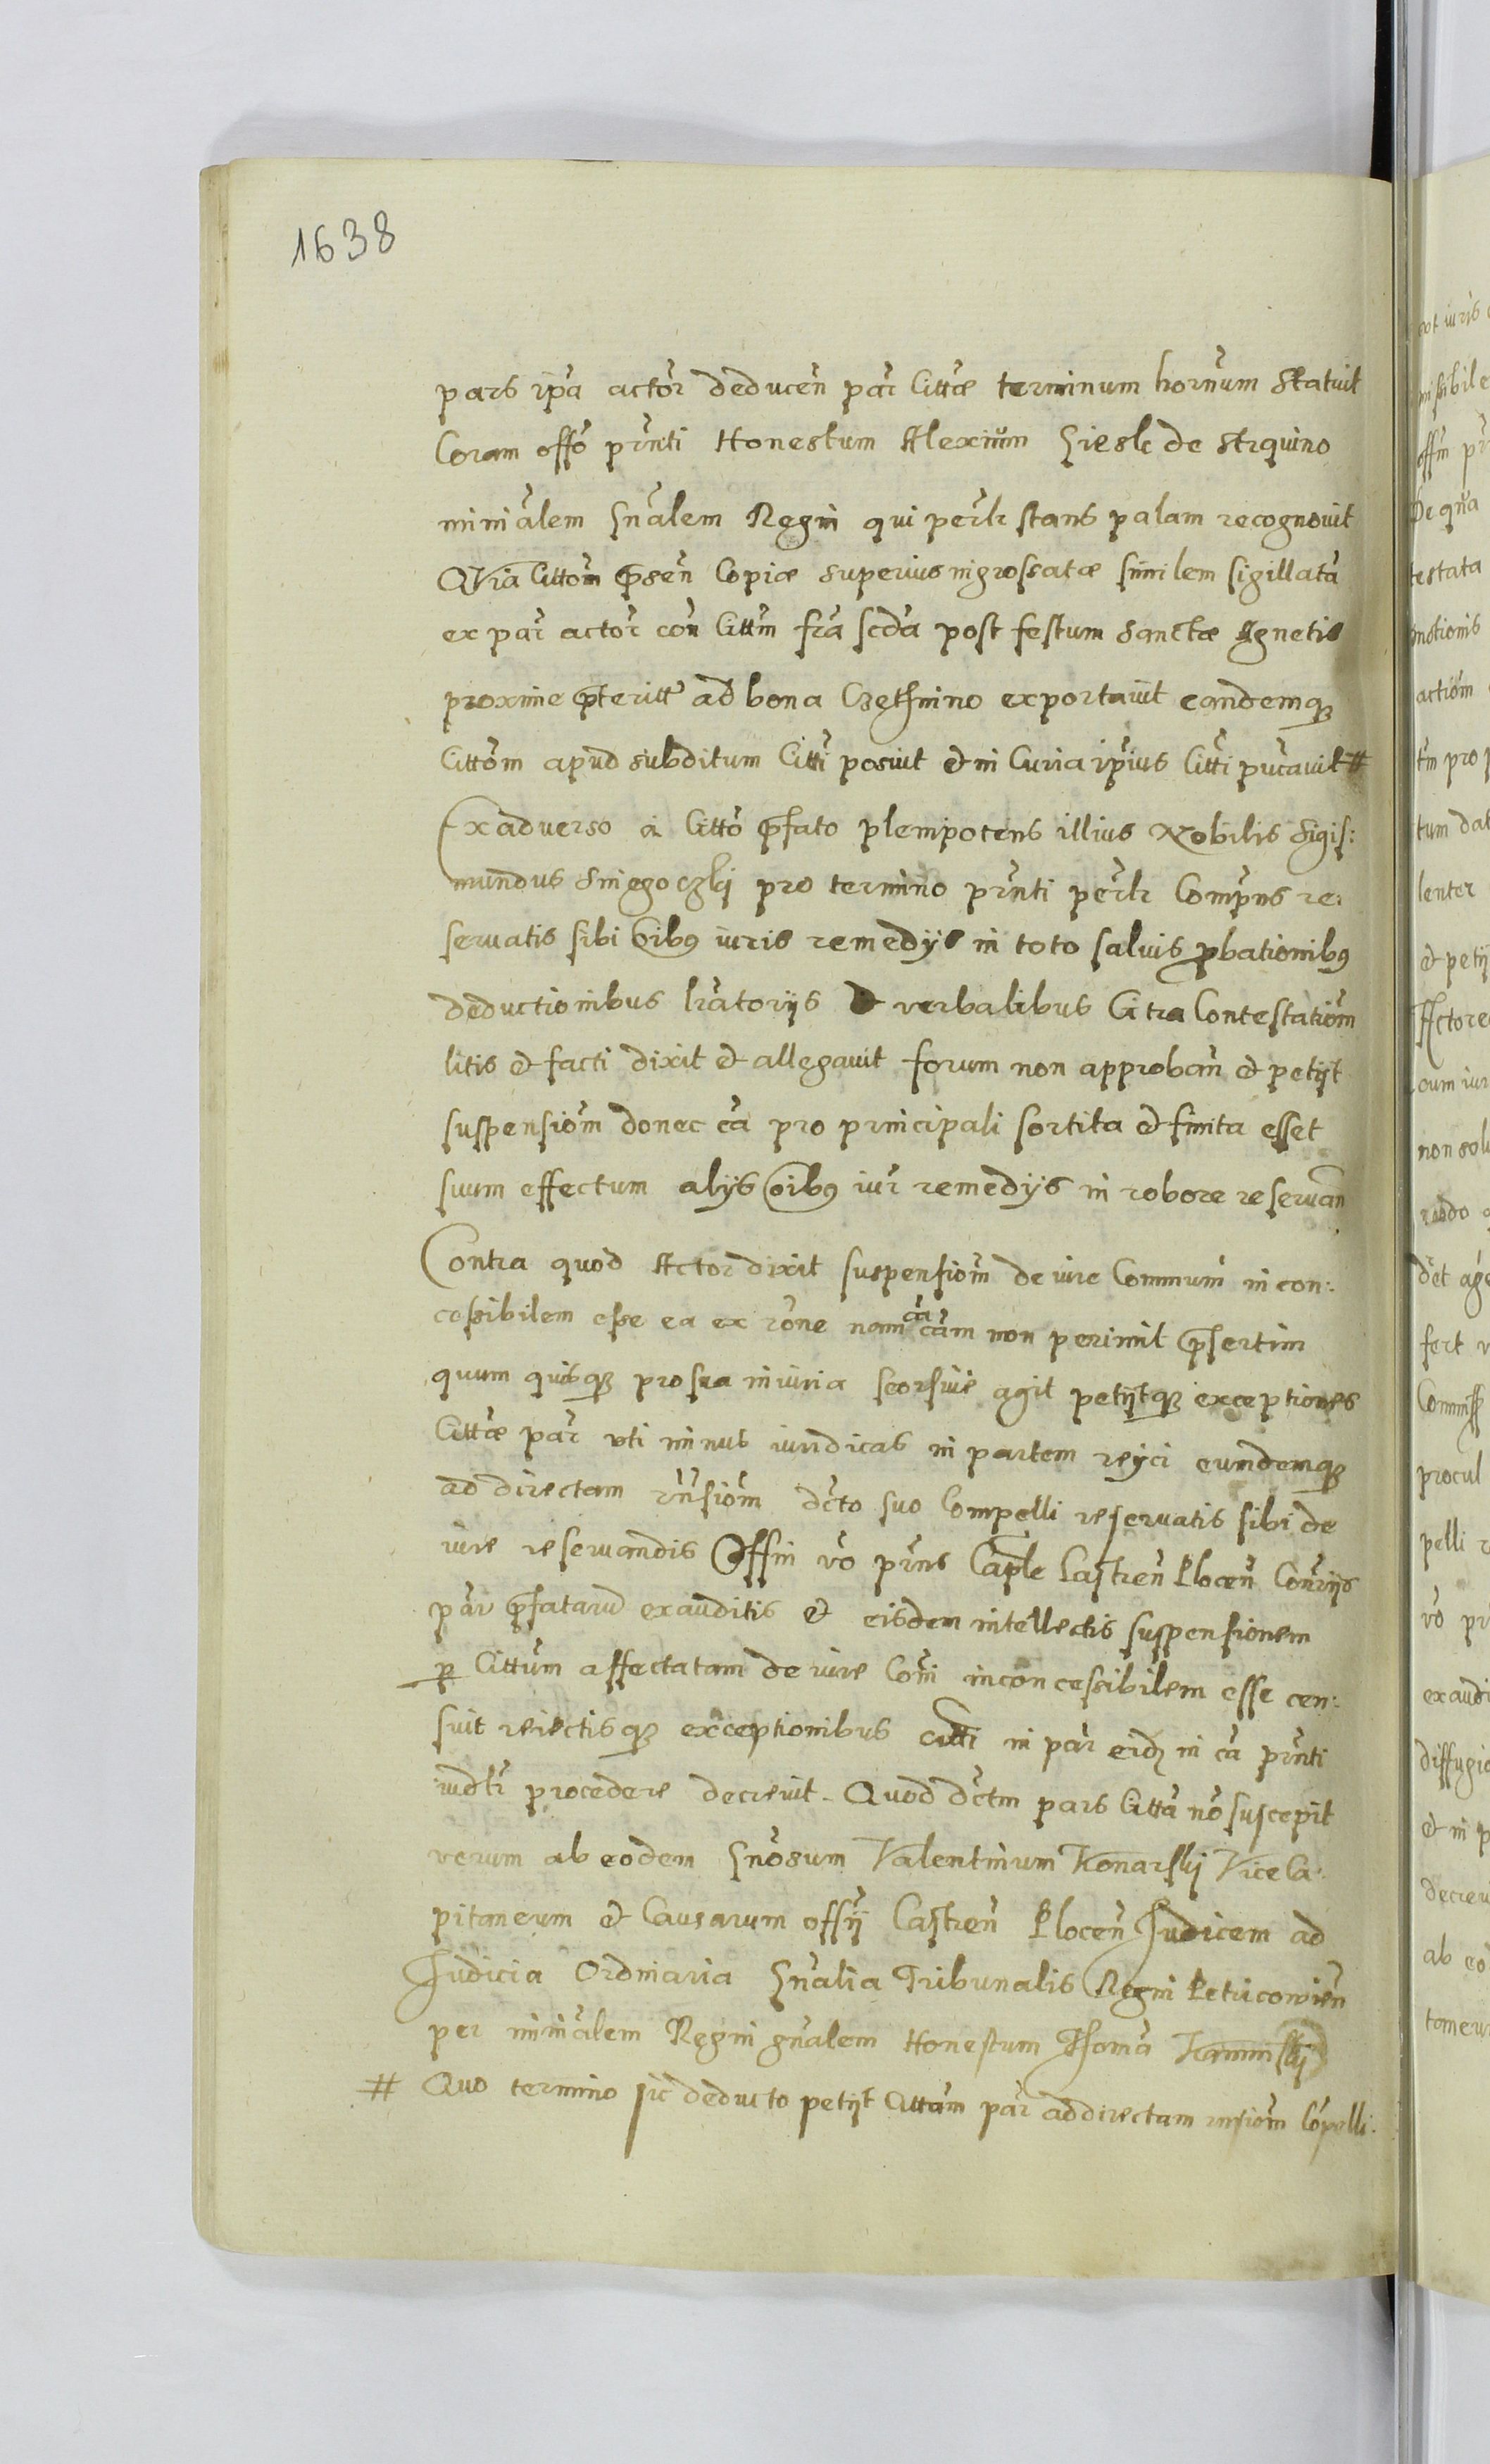 1638
pars ip̃a actor̃ deduceñ par̃ Cittæ terminum horñum statuit
Coram offo prñti Honestum Alexium Ziesk de Strquino
minĩalem gñalem Regni qui per̃lr stans palam recognovit
Quia Citt̃om p̃sẽn Copiæ superius ingrossatæ similem sigillatã
ex par̃ actor̃ coñ Cittm̃ frã scdã post festum Sanctæ Agnetis
proxime p̃teritt̃ ad bona exportavit eandemq3
Citt̃om apud subditum Citti posuit et in Curia ip̃ius Citti pu͂cavit #
Ex adverso a Citto p̃fato plenipotens illius Nobilis Sigis:
mundus Sniegoczkj pro termino prñti per̃lr Comp̃ns re:
servatis sibi oĩbq iuris remedijs in toto salvis p̱bationibq
deductionibus lr̃atorijs et verbalibus Citra Contestatiõm
litis et facti dixit et allegavit forum non approbañ et petijt
suspensiõm donec cã pro principali sortita et finita esset
suum effectum alijs oĩbq iur̃ remedijs in robore reservañ
Contra quod Actor dixit suspensiõm de iure Communi incon:
cessibilem esse ea ex rõne nam cã cãm non perimit p̃sertim
quum quisq3 pro sua iniuria seorsive agit petijtq3 exceptiones
Cittæ par̃ uti minus iuridicas in partem reijci eundemq3
ad directam rñsiõm dc̃to suo Compelli reservatis sibi de
iure reservandis Offm̃ vo prñs Caple Castreñ Ploceñ Conr̃ijs
par̃ p̃fatarũ exauditis et eisdem intellectis suspensionem
p̱ Cittum affectatam de iure Com̃i inconcessibilem esse cen:
suit reiectisq3 exceptionibus Citti in par̃ eidz in cã prñti
iud̃lr procedere decrevit. Quod dc̃tm pars Citta nõ suscepit
verum ab eodem Gñosum Valentinum Konarskj ViceCa:
pitaneum et Causarum offij Castreñ Ploceñ Judicem ad
Judicia Ordinaria Gñalia Tribunalis Regni Petricovieñ
per minĩalem Regni gñalem Honestum Thomã Kaminskj
# Quo termino sic deducto petijt Cittam par̃ ad directam rnsiõm Cõpelli.